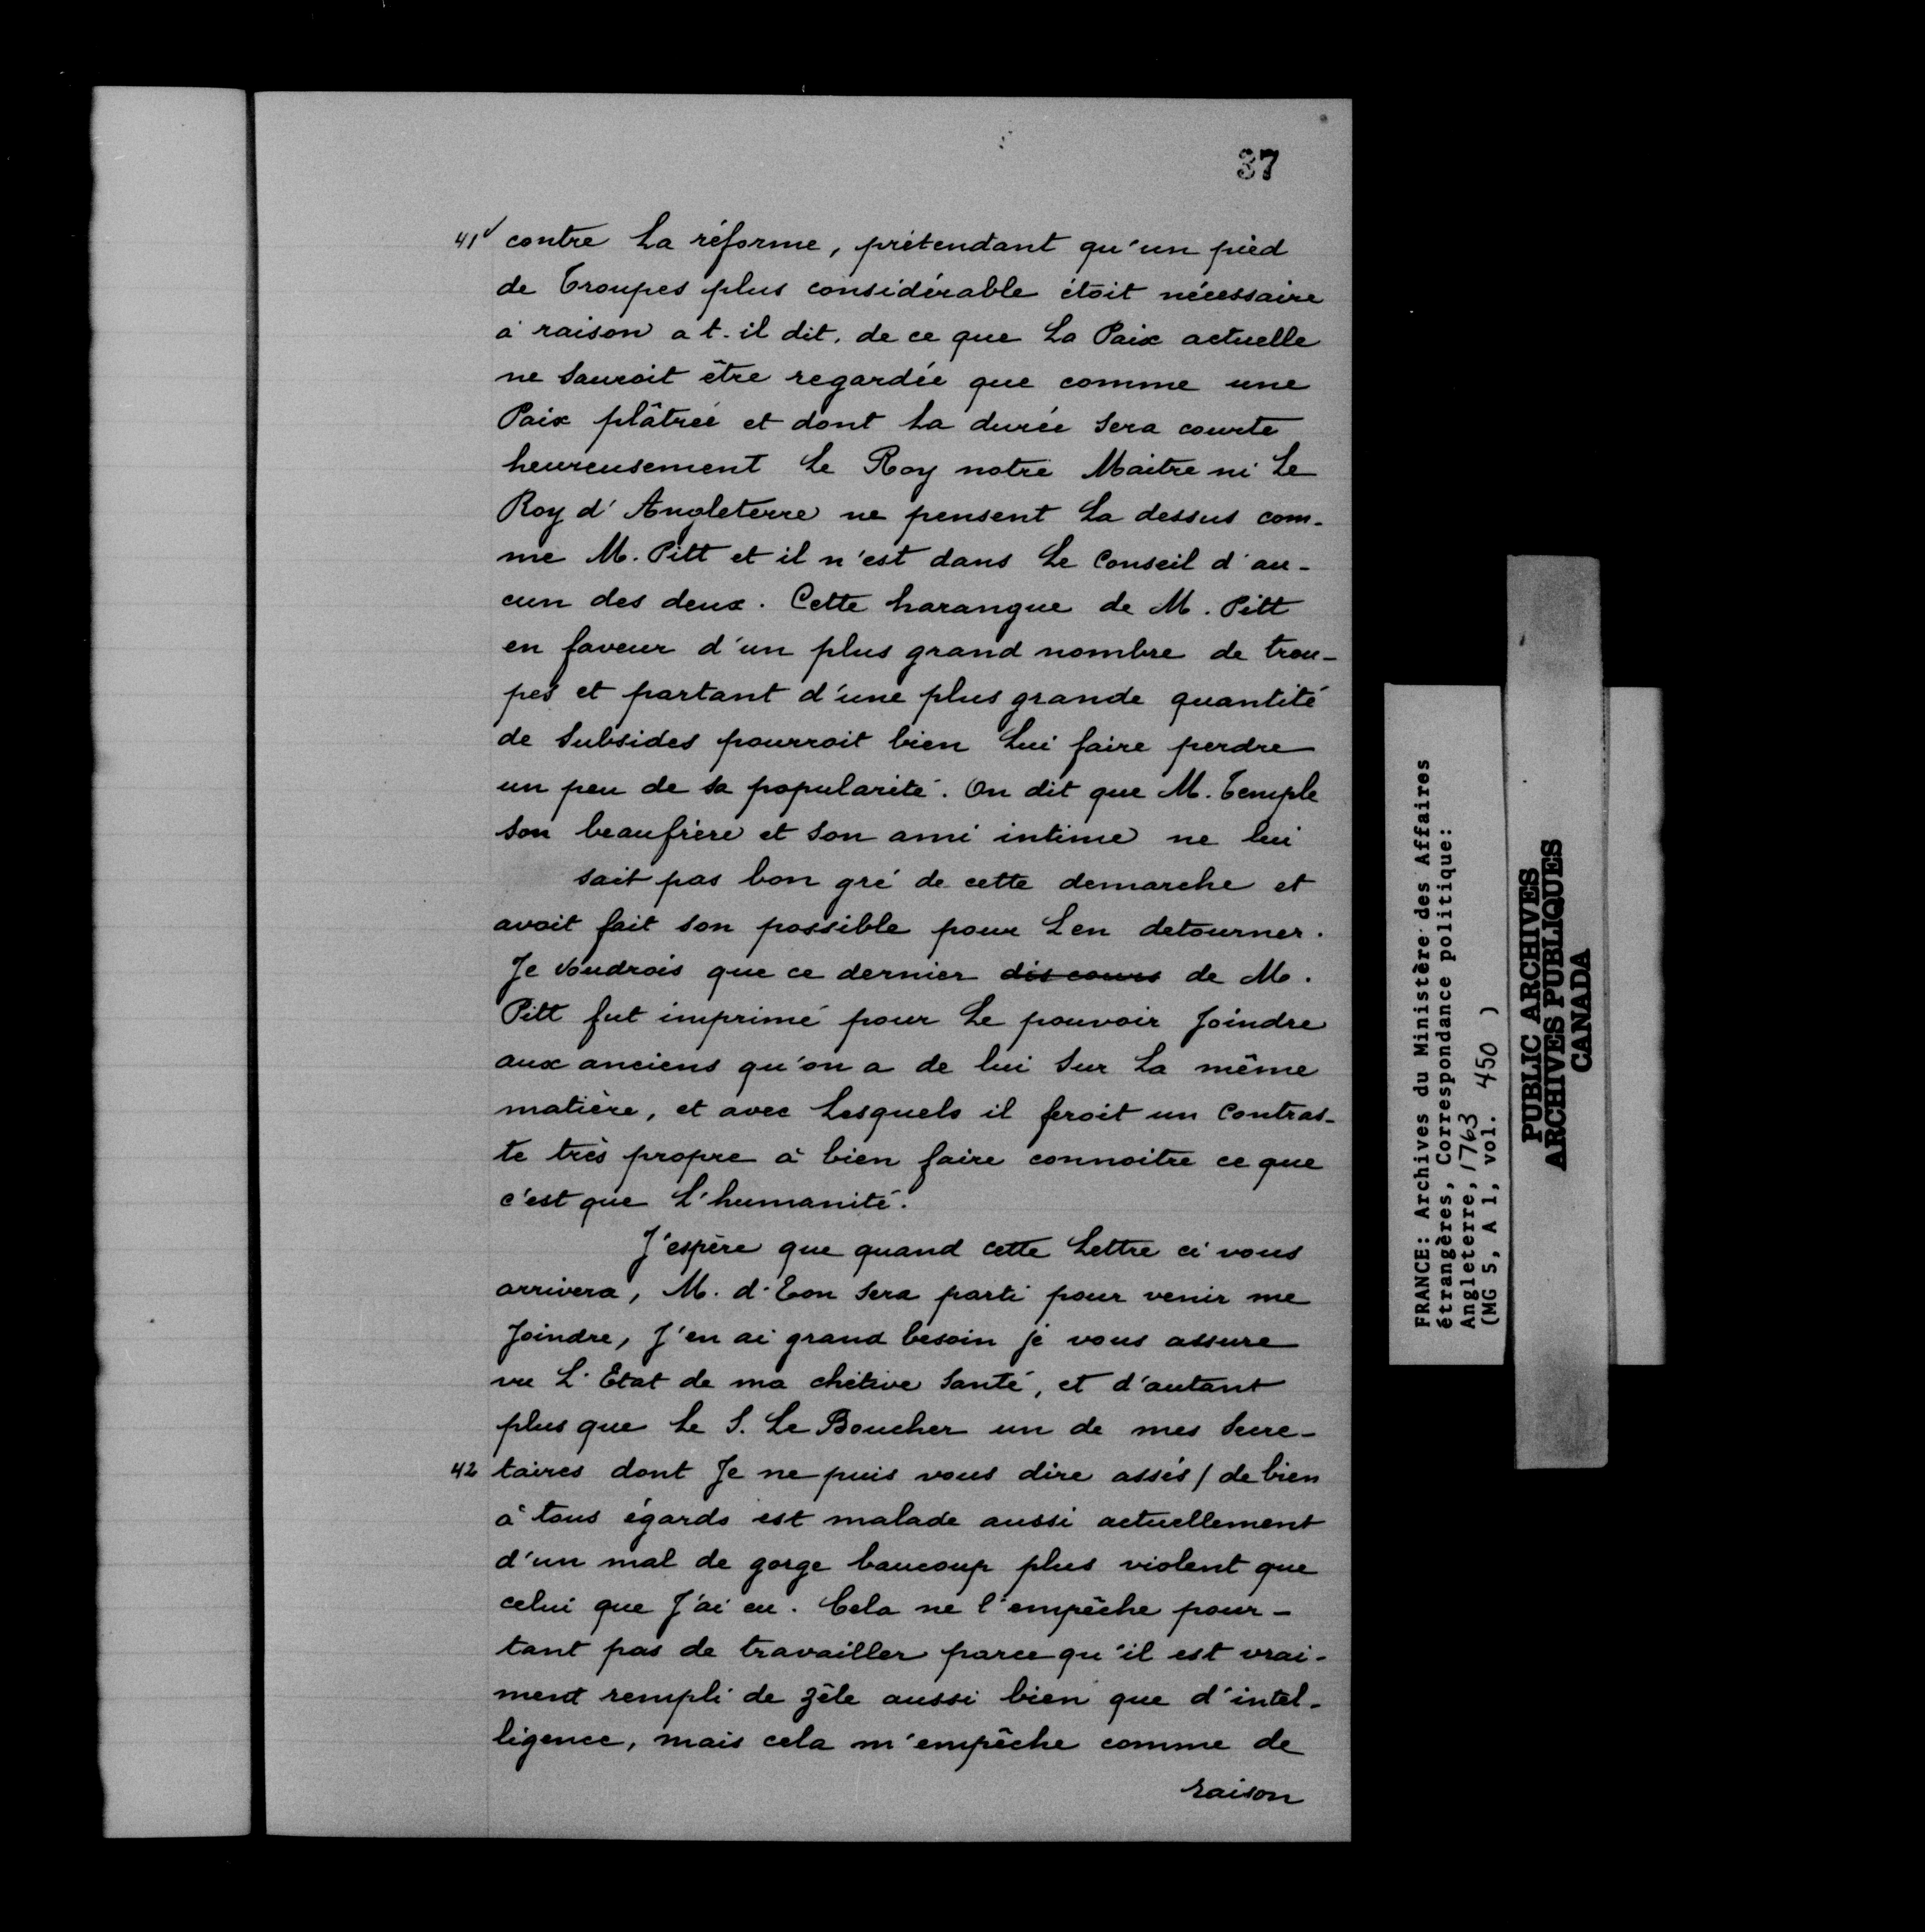 37
41v contre La réforme, prétendant qu'un pied
de Troupes plus considérable étoit nécessaire
à raison a t-il dit, de ce que La Paix actuelle
ne Sauroit être regardée que comme une
Paix plâtrée et dont La durée Sera courte
heureusement Le Roy notre Maitre ni Le
Roy d'Angleterre ne pensent La dessus com-
me M. Pitt et il n'est dans Le Conseil d'au-
cun des deux. Cette harangue de M. Pitt
en faveur d'un plus grand nombre de trou-
pes et partant d'une plus grande quantité
de Subsides pourroit bien Lui faire perdre
un peu de Sa popularité. On dit que M. Temple
Son beaufrère et Son ami intime ne lui
sait pas bon gré de cette demarche et
avoit fait son possible pour L'en detourner.
Je Voudrois que ce dernier discours de M.
Pitt fut imprimé pour Le pouvoir Joindre
aux anciens qu'on a de lui Sur La même
matière, et avec Lesquels il feroit un Contras-
te très propre à bien faire connoitre ce que
c'est que L'humanité.
J'espère que quand cette Lettre ci vous
arrivera, M. d'Eon Sera parti pour venir me
Joindre, J'en ai grand besoin je vous assure
vu L'Etat de ma chétive Santé, et d'autant
plus que Le S. Le Boucher un de mes Secre-
42 taires dont Je ne puis vous dire assés / de bien
à tous égards est malade aussi actuellement
d'un mal de gorge baucoup plus violent que
celui que J'ai eu. Cela ne l'empêche pour-
tant pas de travailler parce qu'il est vrai-
ment rempli de zèle aussi bien que d'intel-
ligence, mais cela m'empêche comme de
raison
FRANCE: Archives du Ministère des Affaires
étrangères, Correspondance politique:
Angleterre, 1763
(MG 5, A 1, vol. 450 )
PUBLIC ARCHIVES
ARCHIVES PUBLIQUES
CANADA